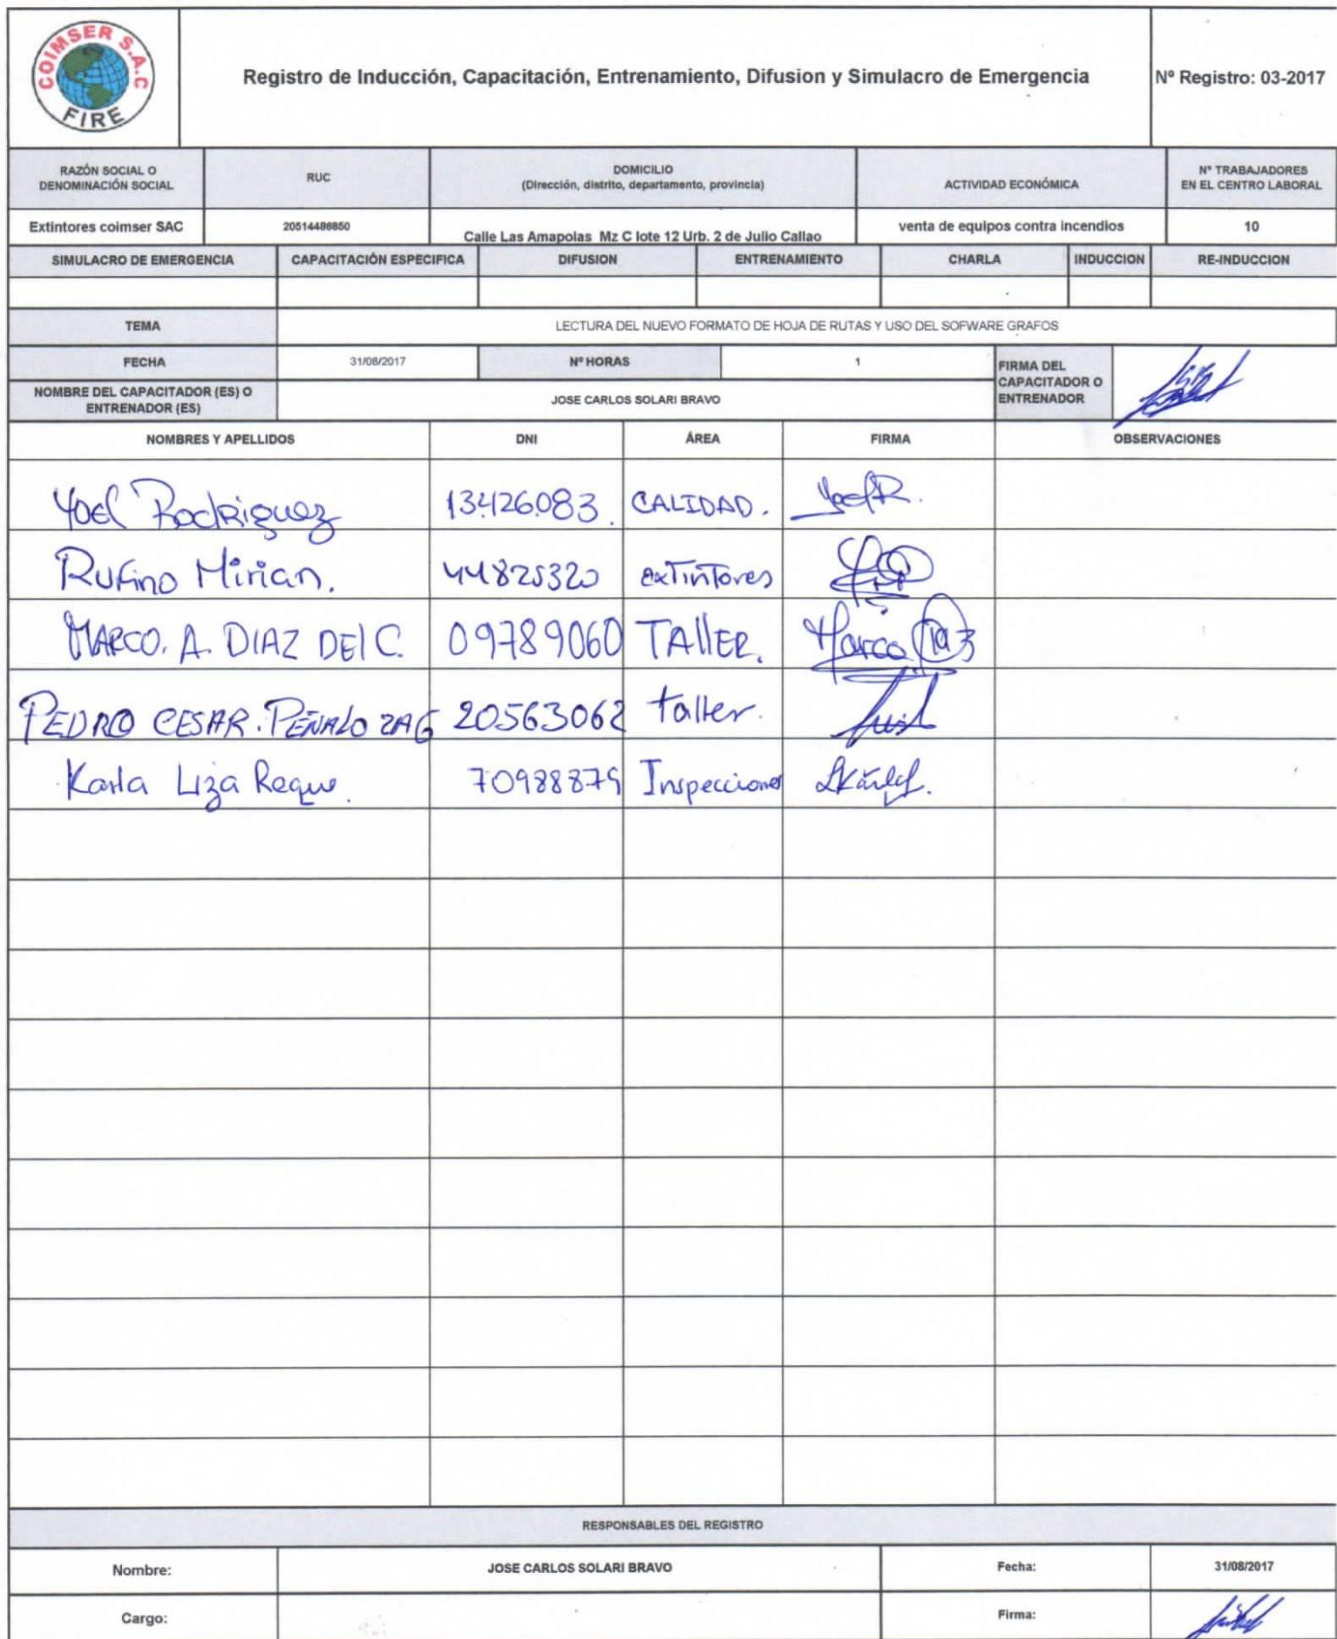 COIMSER S.A.C
FIRE
Registro de Inducción, Capacitación, Entrenamiento, Difusion y Simulacro de Emergencia
Nº Registro: 03-2017
RAZÓN SOCIAL O DENOMINACIÓN SOCIAL
RUC
DOMICILIO
(Dirección, distrito, departamento, provincia)
ACTIVIDAD ECONÓMICA
Nº TRABAJADORES EN EL CENTRO LABORAL
Extintores coimser SAC
20514486850
Calle Las Amapolas Mz C lote 12 Urb. 2 de Julio Callao
venta de equipos contra incendios
10
SIMULACRO DE EMERGENCIA
CAPACITACIÓN ESPECIFICA
DIFUSION
ENTRENAMIENTO
CHARLA
INDUCCION
RE-INDUCCION
TEMA
LECTURA DEL NUEVO FORMATO DE HOJA DE RUTAS Y USO DEL SOFWARE GRAFOS
FECHA
31/08/2017
Nº HORAS
1
FIRMA DEL CAPACITADOR O ENTRENADOR
NOMBRE DEL CAPACITADOR (ES) O ENTRENADOR (ES)
JOSE CARLOS SOLARI BRAVO
NOMBRES Y APELLIDOS
DNI
ÁREA
FIRMA
OBSERVACIONES
Yoel Rodriguez 13426083. CALIDAD. YoelR.
Rufino Mirian. 44825320 extintores
MARCO. A. DIAZ DEl C. 09789060 TAllER. Marco Diaz
PEDRO CESAR. PEÑALOZA G 20563062 taller.
Karla Liza Reque. 70988879 Inspecciones
RESPONSABLES DEL REGISTRO
Nombre:
JOSE CARLOS SOLARI BRAVO
Fecha:
31/08/2017
Cargo:
Firma: